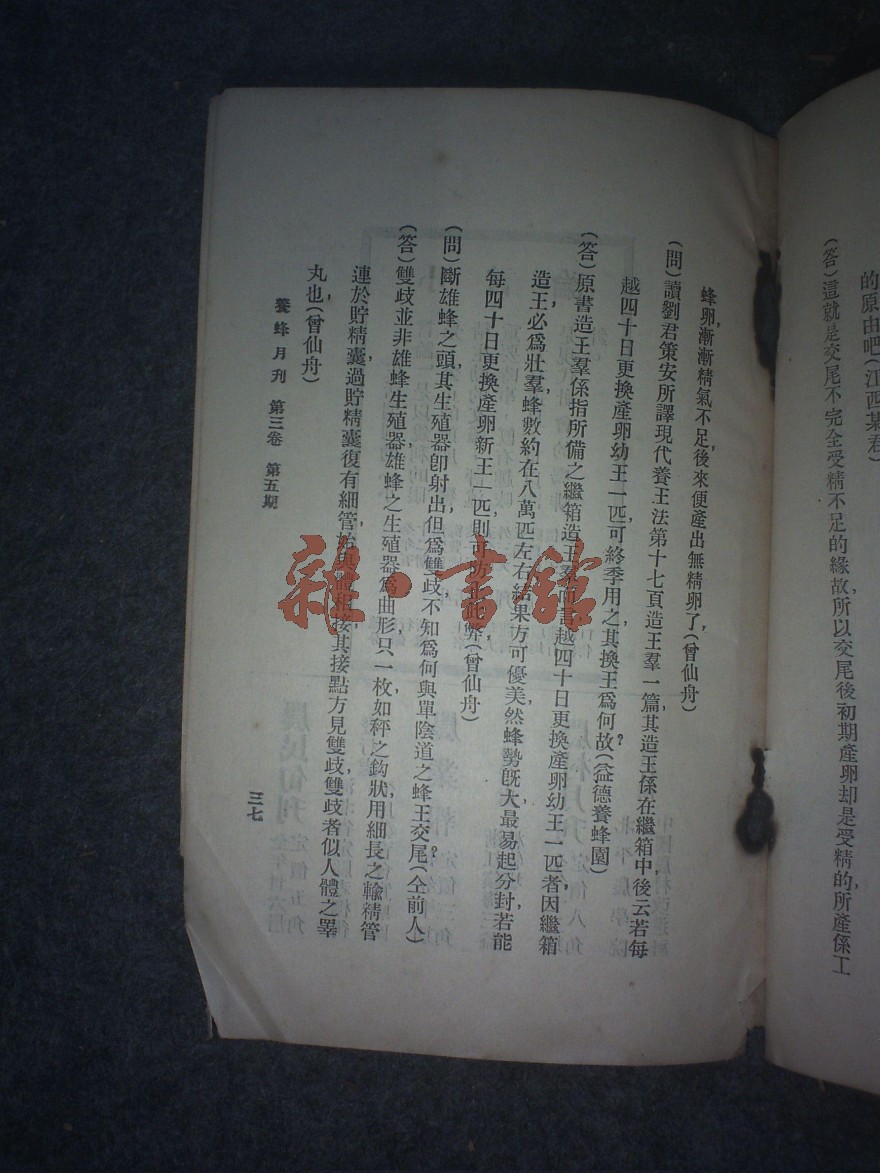 的原由吧(江西某君)
(答)這就是交尾不完全受精不足的緣故,所以交尾後初期產卵却是受精的,所產係工
蜂卵,漸漸精氣不足後來便產出無精卵了,(曾仙舟)
(問)讀劉君策安所譯現代養王法第十七頁造王羣一篇,其造王係在繼箱中後云若每
越四十日更換產卵幼王一匹,可終季用之,其換王為何故?(益德養蜂園)
(答)原書造王羣係指所備之繼箱造王羣而言越四十日更換產卵幼王一匹者,因繼箱
造王必為壯羣,蜂數約在八萬匹左右,結果方可優美,然蜂勢旣大,最易起分封若能
每四十日更換產卵新王一匹則可防此弊(曾仙舟)
(問)斷雄蜂之頭,其生殖器卽射出但為雙歧,不知為何與單陰道之蜂王交尾?(仝前人)
(答)雙歧並非雄蜂生殖器,雄蜂之生殖器為曲形,只一枚,如秤之鈎狀,用細長之輸精管
連於貯精囊,過貯精囊復有細管始與體相接,其接點方見雙歧,雙歧者似人體之睪
丸也,(曾仙舟)
養蜂月刊 第三卷 第五期
三七
雜·書館